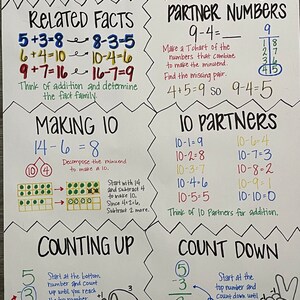 RELATED FACTS
5+3=8 8-3=5
6+4=10 10-4=6
9+7=16 16-7=9
Think of addition and determine
the fact family.
PARTNER NUMBERS
9-4=__
Make a T chart of the
numbers that combine
to make the minuend.
Find the missing pair.
9
1 8
2 7
3 6
4 5
4+5=9 so 9-4=5
MAKING 10
14-6=8
10 4
Decompose the
to make a 10.
Start with 14
and subtract 4
to make 10.
Since 4+2=6,
Subtract 2 more.
10 PARTNERS
10-1=9 10-6=4
10-2=8 10-7=3
10-3=7 10-8=2
10-4=6 10-9=1
10-5=5 10-10=0
Think of 10 Partners for addition.
COUNTING UP
5
3
Start at the bottom
number and count
up until you reach
3
COUNT DOWN
5
-3
Start at the
top number and
count down until